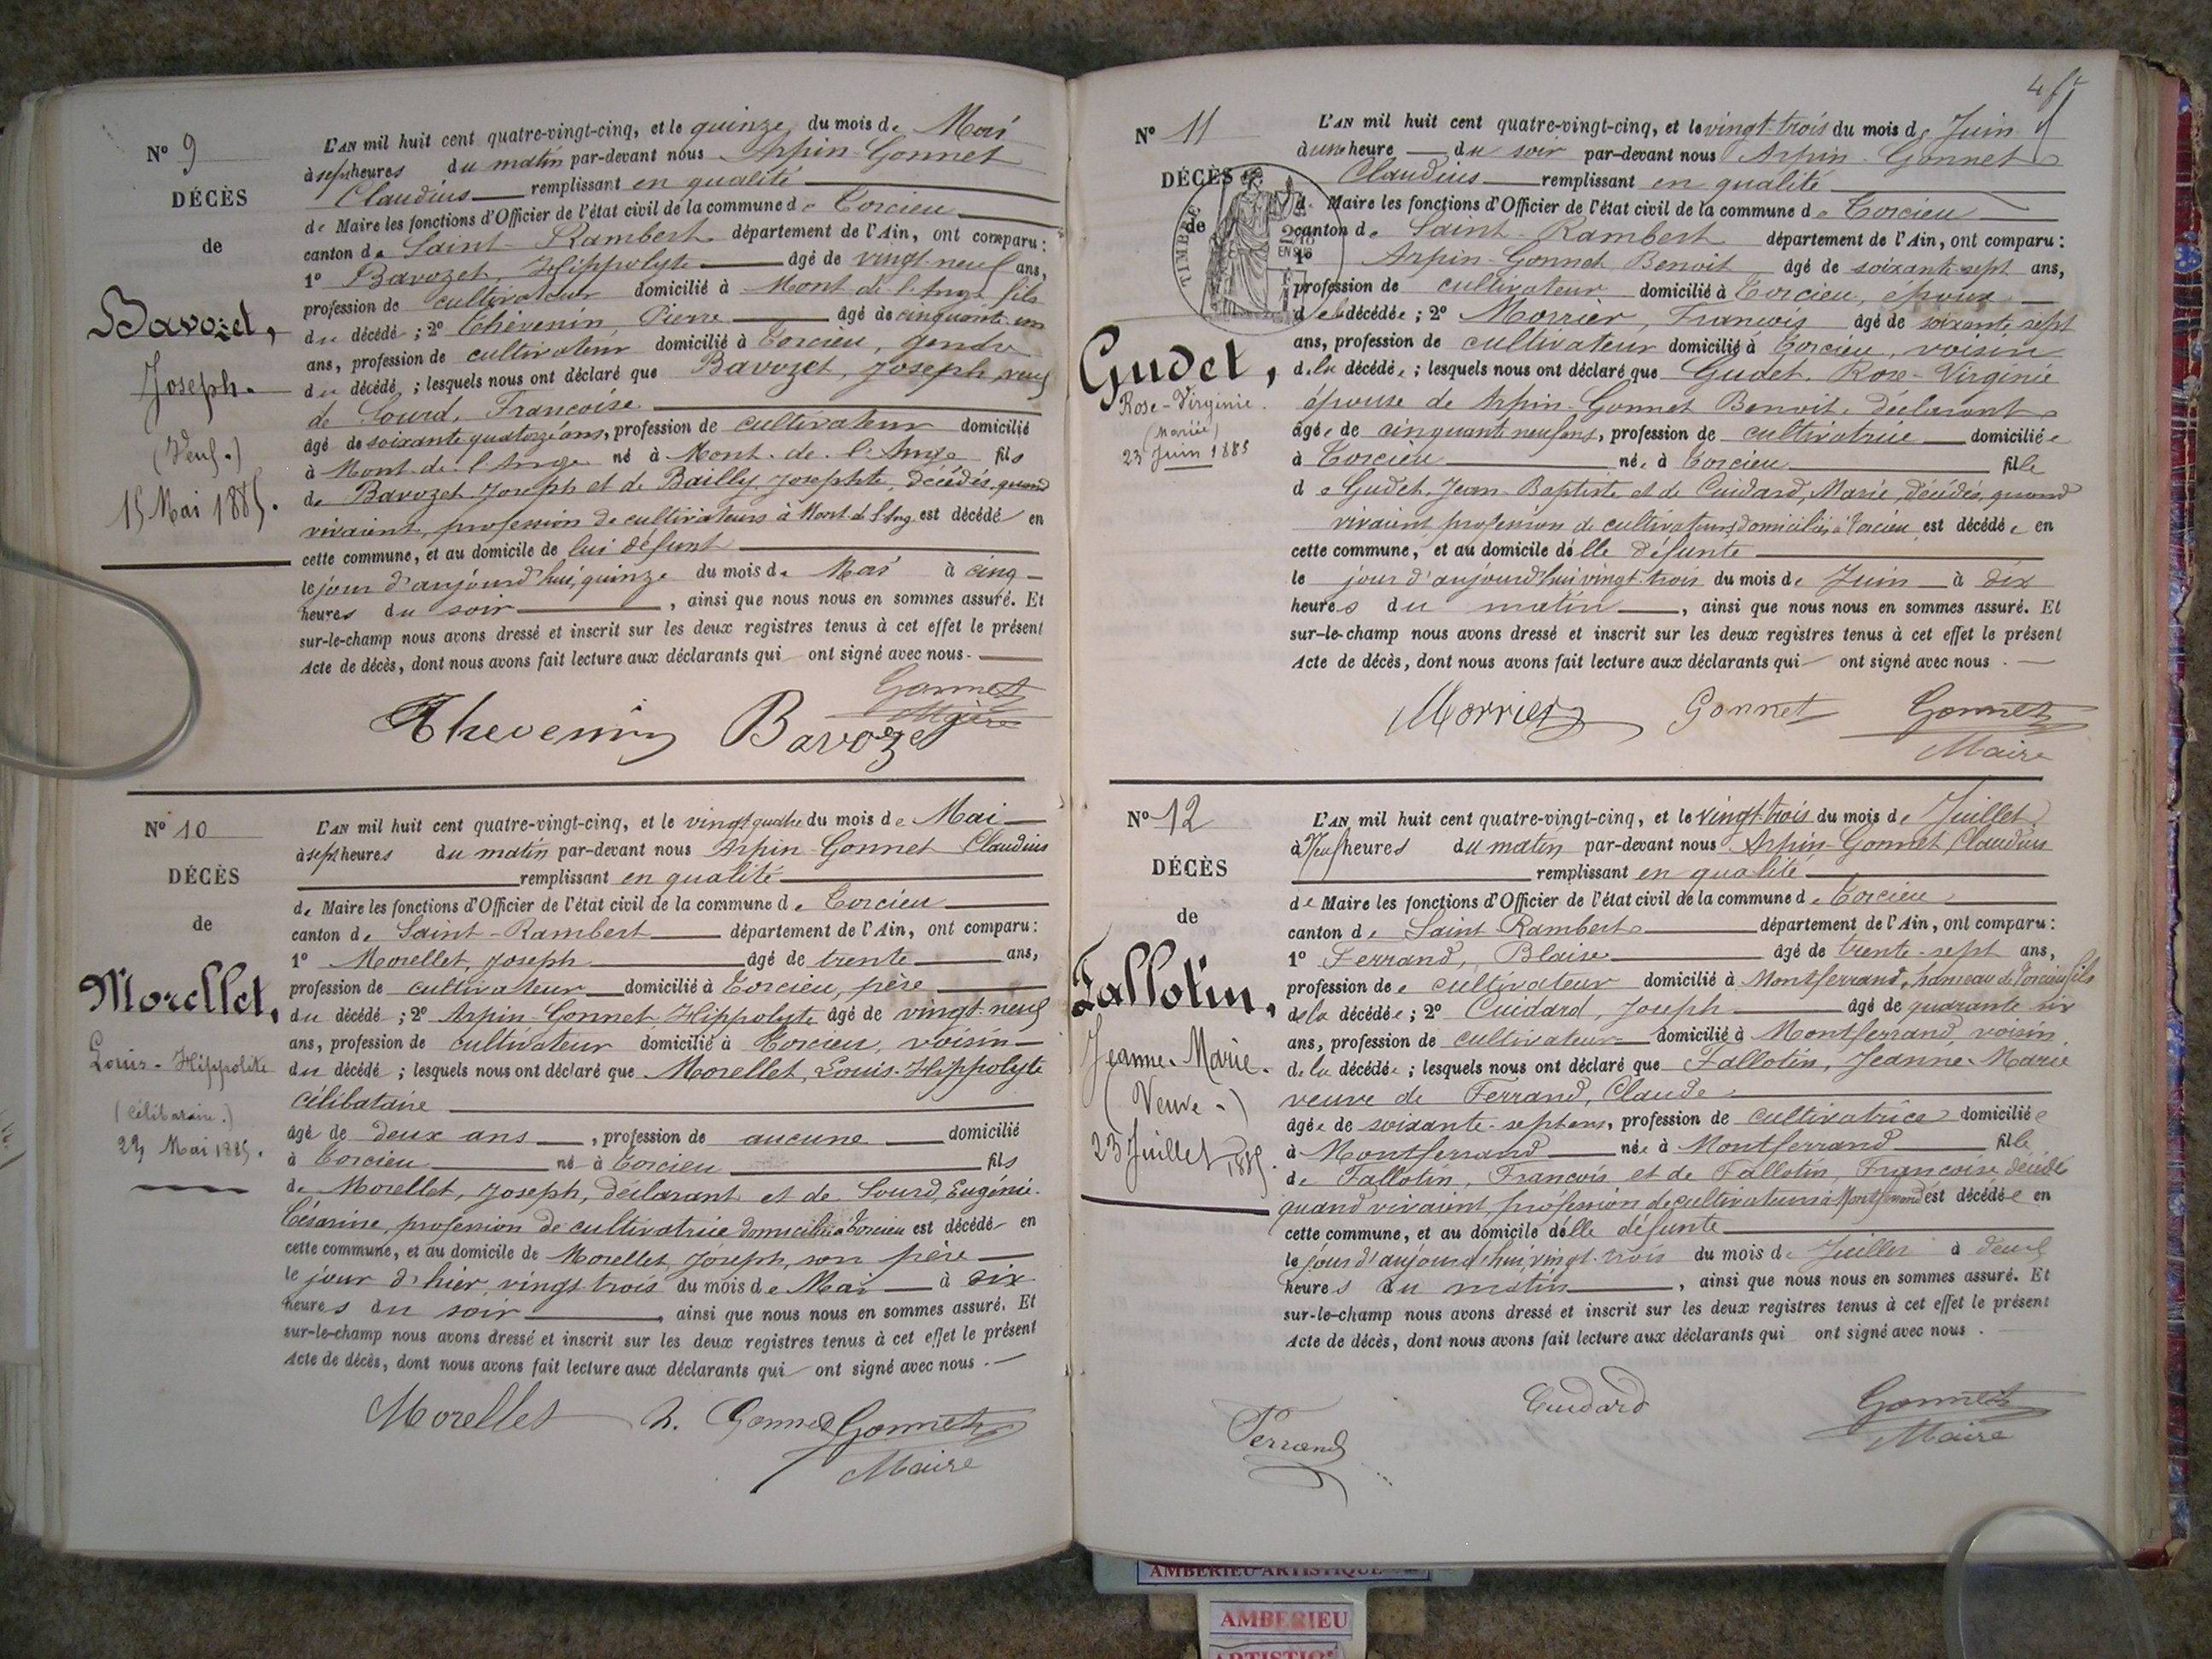 N° 9
DÉCÈS
de
Bavozet,
Joseph.
(Veuf.)
15 Mai 1885.
L'AN mil huit cent quatre-vingt-cinq, et le quinze du mois de Mai
à sept heures du matin par-devant nous Arpin-Gonnet
Claudius remplissant en qualité
de Maire les fonctions d'Officier de l'état civil de la commune de Torcieu
canton de Saint-Rambert département de l'Ain, ont comparu :
1° Bavozet, Hippolyte âgé de vingt-neuf ans,
profession de cultivateur domicilié à Mont-de-l'Ange fils
du décédé ; 2° Thévenin, Pierre âgé de cinquante-un
ans, profession de cultivateur domicilié à Torcieu, gendre
du décédé ; lesquels nous ont déclaré que Bavozet, Joseph, veuf
de Sourd, Françoise
âgé de soixante quatorze ans, profession de cultivateur domicilié
à Mont-de-l'Ange né à Mont-de-l'Ange fils
de Bavozet Joseph et de Bailly Josephte, décédés, quand
vivaient, profession de cultivateurs à Mont-de-l'Ang. est décédé en
cette commune, et au domicile de lui défunt
le jour d'aujourd'hui, quinze du mois de Mai à cinq
heures du soir , ainsi que nous nous en sommes assuré. Et
sur-le-champ nous avons dressé et inscrit sur les deux registres tenus à cet effet le présent
Acte de décès, dont nous avons fait lecture aux déclarants qui ont signé avec nous.
Gonnet
Maire
Thevenin Bavozet
N° 10
DÉCÈS
de
Morellet,
Louis-Hippolite
(Célibataire.)
23 Mai 1885.
L'AN mil huit cent quatre-vingt-cinq, et le vingt quatre du mois de Mai
à sept heures du matin par-devant nous Arpin-Gonnet Claudius
remplissant en qualité
de Maire les fonctions d'Officier de l'état civil de la commune de Torcieu
canton de Saint-Rambert département de l'Ain, ont comparu :
1° Morellet, Joseph âgé de trente ans,
profession de cultivateur domicilié à Torcieu, père
du décédé ; 2° Arpin-Gonnet Hippolyte âgé de vingt-neuf
ans, profession de cultivateur domicilié à Torcieu, voisin
du décédé ; lesquels nous ont déclaré que Morellet, Louis-Hippolyte
célibataire
âgé de deux ans , profession de aucune domicilié
à Torcieu né à Torcieu fils
de Morellet, Joseph, déclarant et de Sourd, Eugénie.
Césarine, profession de cultivatrice domiciliée à Torcieu est décédé en
cette commune, et au domicile de Morellet, Joseph, son père
le jour d'hier, vingt-trois du mois de Mai à dix
heures du soir , ainsi que nous nous en sommes assuré. Et
sur-le-champ nous avons dressé et inscrit sur les deux registres tenus à cet effet le présent
Acte de décès, dont nous avons fait lecture aux déclarants qui ont signé avec nous.
Morellet h. Gonnet Gonnet
Maire
N° 11
DÉCÈS
de
TIMBRE
Gudet,
Rose-Virginie.
(Mariée)
23 Juin 1885
L'AN mil huit cent quatre-vingt-cinq, et le vingt-trois du mois de Juin
à une heure du soir par-devant nous Arpin-Gonnet
Claudius remplissant en qualité
de Maire les fonctions d'Officier de l'état civil de la commune de Torcieu
canton de Saint-Rambert département de l'Ain, ont comparu :
1° Arpin-Gonnet Benoit âgé de soixante-sept ans,
profession de cultivateur domicilié à Torcieu, époux
de la décédée ; 2° Morrier, François âgé de soixante sept
ans, profession de cultivateur domicilié à Torcieu, voisin
de la décédée ; lesquels nous ont déclaré que Gudet, Rose-Virginie
épouse de Arpin-Gonnet Benoit, déclarant
âgée de cinquante neuf ans, profession de cultivatrice domiciliée
à Torcieu née à Torcieu fille
de Gudet, Jean-Baptiste et de Cuidard, Marie, décédés, quand
vivaient profession de cultivateurs, domiciliés à Torcieu, est décédée en
cette commune, et au domicile d'elle défunte
le jour d'aujourd'hui vingt-trois du mois de Juin à dix
heures du matin , ainsi que nous nous en sommes assuré. Et
sur-le-champ nous avons dressé et inscrit sur les deux registres tenus à cet effet le présent
Acte de décès, dont nous avons fait lecture aux déclarants qui ont signé avec nous.
Morrier Gonnet Gonnet
Maire
N° 12
DÉCÈS
de
Fallotin,
Jeanne-Marie.
(Veuve.)
23 Juillet 1885.
L'AN mil huit cent quatre-vingt-cinq, et le vingt-trois du mois de Juillet
à Neuf heures du matin par-devant nous Arpin-Gonnet Claudius
remplissant en qualité
de Maire les fonctions d'Officier de l'état civil de la commune de Torcieu
canton de Saint-Rambert département de l'Ain, ont comparu :
1° Ferrand, Blaise âgé de trente-sept ans,
profession de cultivateur domicilié à Montferrand, hameau de Torcieu fils
de la décédée ; 2° Cuidard, Joseph âgé de quarante six
ans, profession de cultivateur domicilié à Montferrand voisin
de la décédée ; lesquels nous ont déclaré que Fallotin, Jeanne-Marie
veuve de Ferrand, Claude
âgée de soixante-sept ans, profession de cultivatrice domiciliée
à Montferrand née à Montferrand fille
de Fallotin, François et de Fallotin, Françoise décédés
quand vivaient, profession de cultivateurs à Montferrand est décédée en
cette commune, et au domicile d'elle défunte
le jour d'aujourd'hui, vingt-trois du mois de Juillet à deux
heures du matin , ainsi que nous nous en sommes assuré. Et
sur-le-champ nous avons dressé et inscrit sur les deux registres tenus à cet effet le présent
Acte de décès, dont nous avons fait lecture aux déclarants qui ont signé avec nous.
Ferrand Cuidard Gonnet
Maire
AMBERIEU ARTISTIQUE
AMBERIEU
ARTISTIQUE